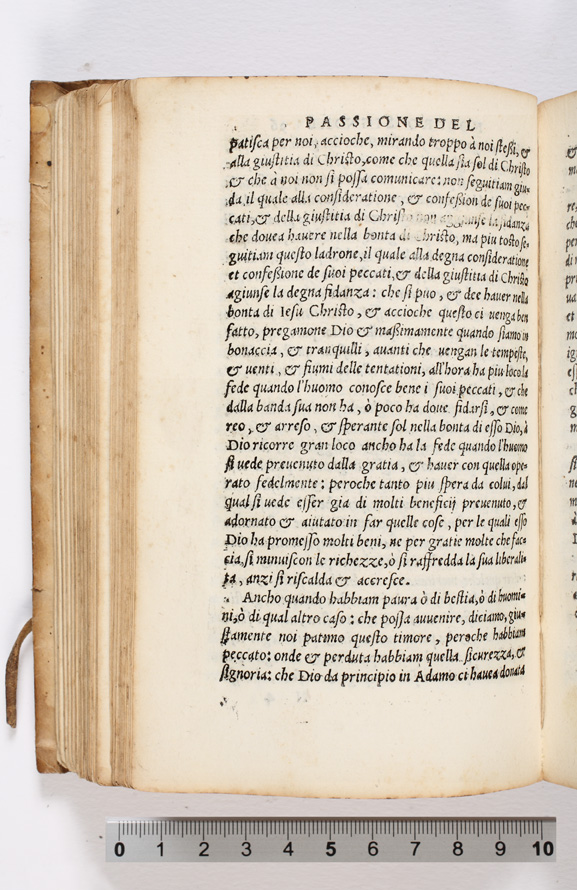 PASSIONE DEL
patiſca per noi, accioche, mirando troppo à noi ſteſsi, &
alla giuſtitia di Chriſto, come che quella ſia ſol di Chriſto
& che à noi non ſi poſſa comunicare: non ſeguitiam giu-
da, il quale alla conſideratione, & confeßion de ſuoi pec-
cati, & della giuſtitia di Chriſto non aggiunſe la fidanza
che douea hauere nella bonta di Chriſto, ma piu toſto ſe-
guitiam queſto ladrone, il quale alla degna conſideratione
et confeßione de ſuoi peccati, & della giuſtitia di Chriſto
agiunſe la degna fidanza: che ſi puo, & dee hauer nella
bonta di Ieſu Chriſto, & accioche queſto ci uenga ben
fatto, pregamone Dio & maßimamente quando ſiamo in
bonaccia, & tranquilli, auanti che uengan le tempeſte,
& uenti, & fiumi delle tentationi, all'hora ha piu loco la
fede quando l'huomo conoſce bene i ſuoi peccati, & che
dalla banda ſua non ha, ò poco ha doue fidarſi, & come
reo, & arreſo, & ſperante ſol nella bonta di eſſo Dio, à
Dio ricorre gran loco ancho ha la fede quando l'huomo
ſi uede preuenuto dalla gratia, & hauer con quella ope-
rato fedelmente: peroche tanto piu ſpera da colui, dal
qual ſi uede eſſer gia di molti beneficij preuenuto, &
adornato & aiutato in far quelle coſe, per le quali eſſo
Dio ha promeſſo molti beni, ne per gratie molte che fac-
cia, ſi minuiſcon le richezze, ò ſi raffredda la ſua liberali-
ta, anzi ſi riſcalda & accreſce.
Ancho quando habbiam paura ò di beſtia, ò di huomi-
ni, ò di qual altro caſo: che poſſa auuenire, diciamo, giu-
ſtamente noi patimo queſto timore, peroche habbiam
peccato: onde & perduta habbiam quella ſicurezza, &
ſignoria: che Dio da principio in Adamo ci hauea donata
0 1 2 3 4 5 6 7 8 9 10